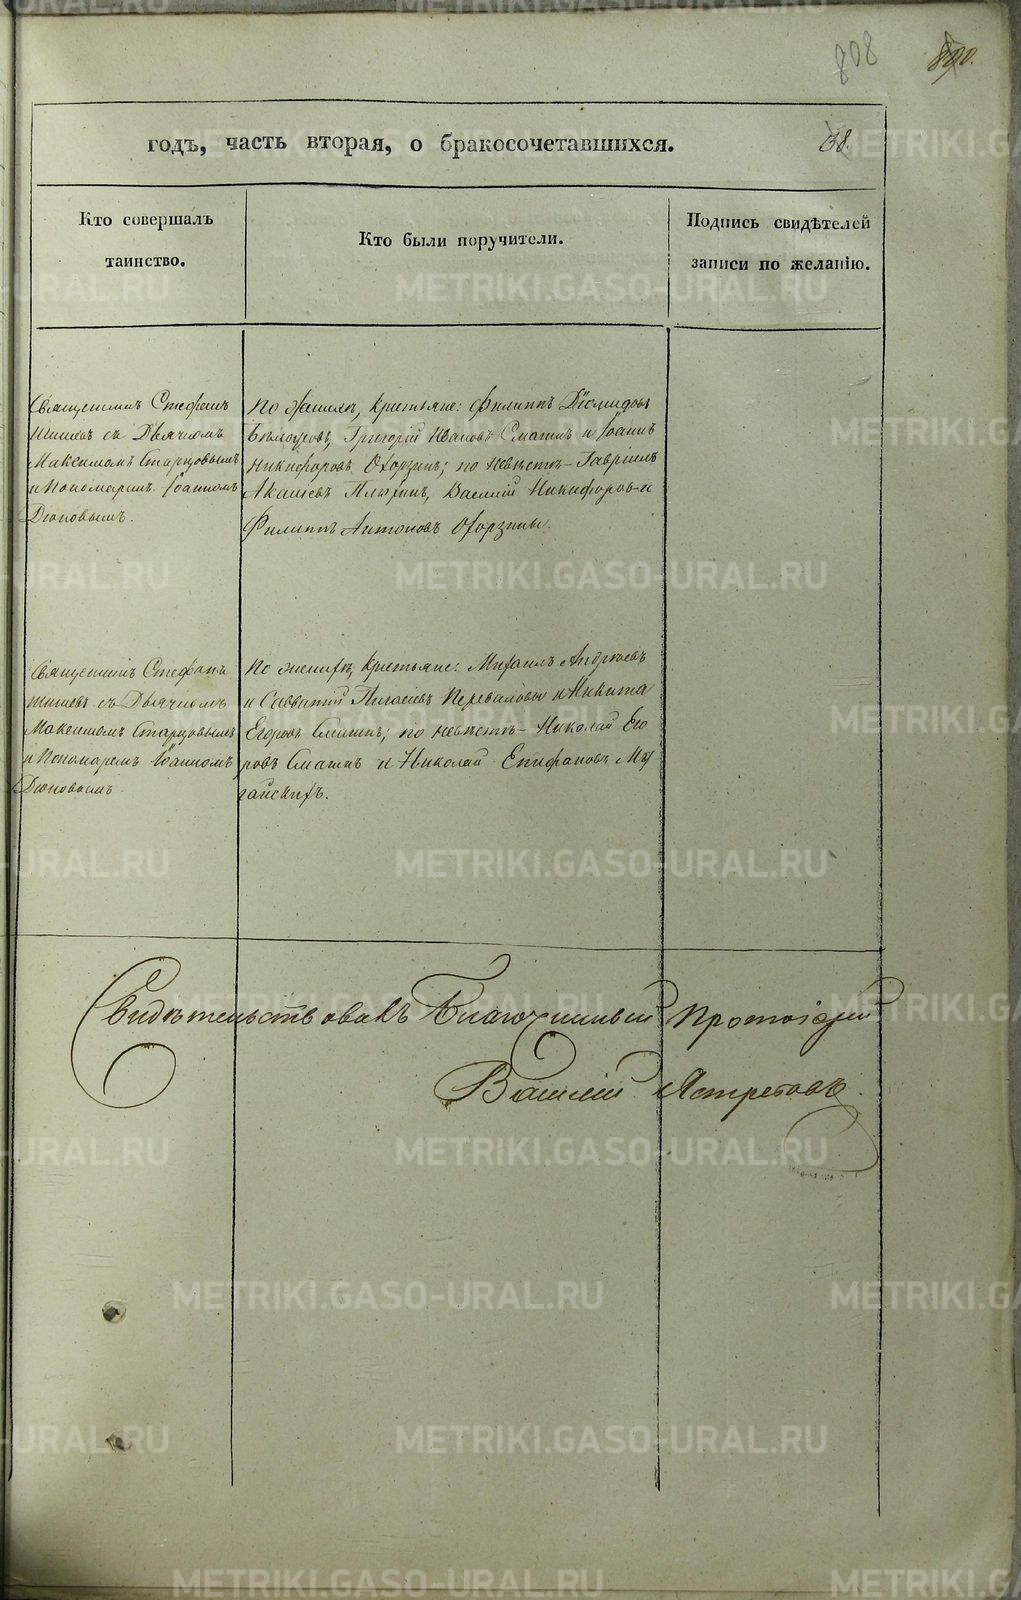 808
890.
годъ, часть вторая, о бракосочетавшихся.
38.
Кто совершалъ
таинство.
Кто были поручители.
Подпись свидѣтелей
записи по желанію.
Священникъ Стефанъ
съ Дьячкомъ
Максимомъ Старцовымъ
и Пономаремъ Іоанномъ
Дюповымъ.
По Женихѣ, Крестьяне: Филиппъ Діомидовъ
Григорій Ивановъ Сматин и Іоаннъ
Никифоровъ Охорзинъ; по Невѣстѣ - Гавріилъ
Василій Никифоровъ и
Филиппъ Антоновъ Охорзины.
Священникъ Стефанъ
съ Дьячкомъ
Максимомъ Старцовымъ
и Пономаремъ Іоанномъ
Дюповымъ
По женихѣ, Крестьяне: Михаилъ Андреевъ
и Савватій Переваловы и Никита
Егоровъ по невѣстѣ - Николай Его
ровъ Сматин и Николай Епифановъ Му
гайскихъ.
Свидѣтельствовалъ Благочинный Протоіерей
Василій Ястребовъ.
METRIKI.GASO-URAL.RU